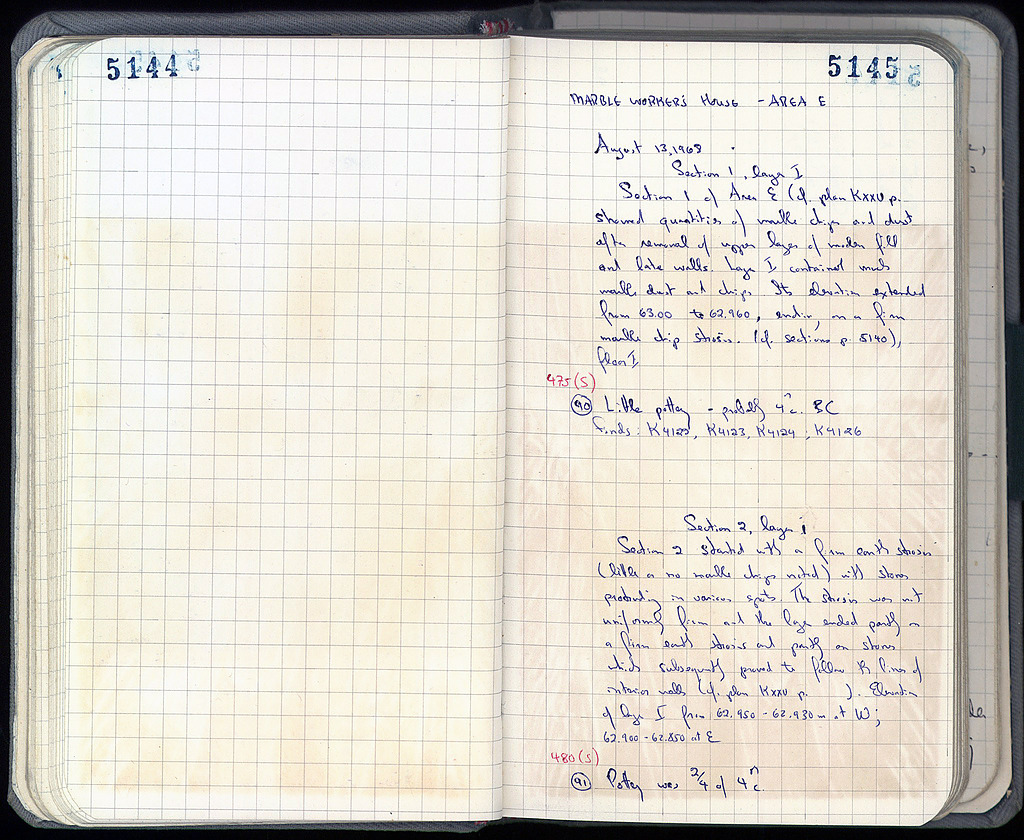 5144
5145
MARBLE WORKER'S HOUSE - AREA E
August 13, 1968
Section 1, layer I
Section 1 of Area E (cf. plan KXXV p.
showed quantities of marble chips and dust
after removal of upper layers of modern fill
and late walls. Layer I contained much
marble dust and chips. Its elevation extended
from 63.00 to 62.960, ending on a firm
marble chip strosis. (cf. sections p. 5140),
floor I
475(S)
90 Little pottery - probably 4th c. BC
Finds: K4123, K4124, K4126
Section 2, layer i
Section 2 started with a firm earth strosis
(little or no marble chips noted) with stones
protruding in various spots. The strosis was not
uniformly firm and the layer ended partly on
a firm earth strosis and partly on stones
which subsequently proved to follow the lines of
interior walls (cf. plan KXXV p. ). Elevation
of layer I from 62.950 - 62.930 m at W;
62.900 - 62.850 at E
480(S)
91 Pottery was 2/4 of 4th c.